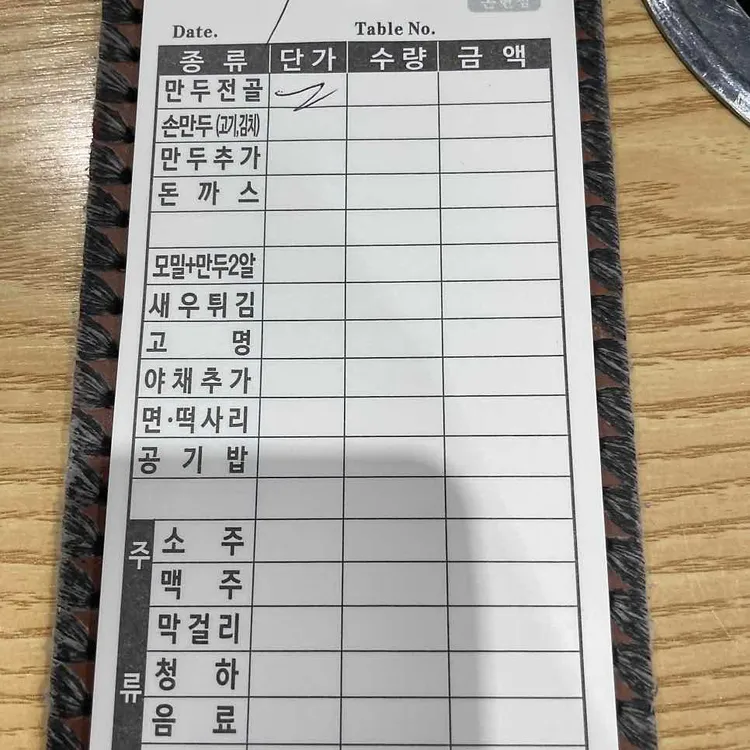 Date. Table No.
종류 단가 수량 금액
만두전골
손만두 (고기,김치)
만두추가
돈까스
모밀+만두2알
새우튀김
고명
야채추가
면·떡사리
공기밥
주류
소주
맥주
막걸리
청하
음료